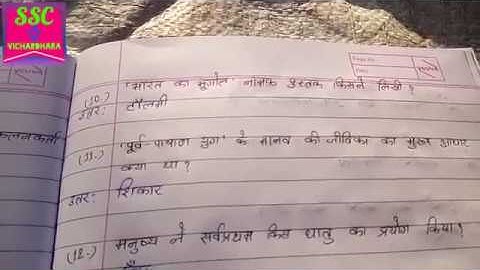 SSC
VICHARDHARA
(10.) 'भारत का भूगोल' नामक पुस्तक किसने लिखी ?
उत्तर: टॉलमी
(11.) 'पूर्व-पाषाण युग' के मानव की जीविका का मुख्य आधार
क्या था ?
उत्तर: शिकार
(12.) मनुष्य ने सर्वप्रथम किस धातु का प्रयोग किया ?